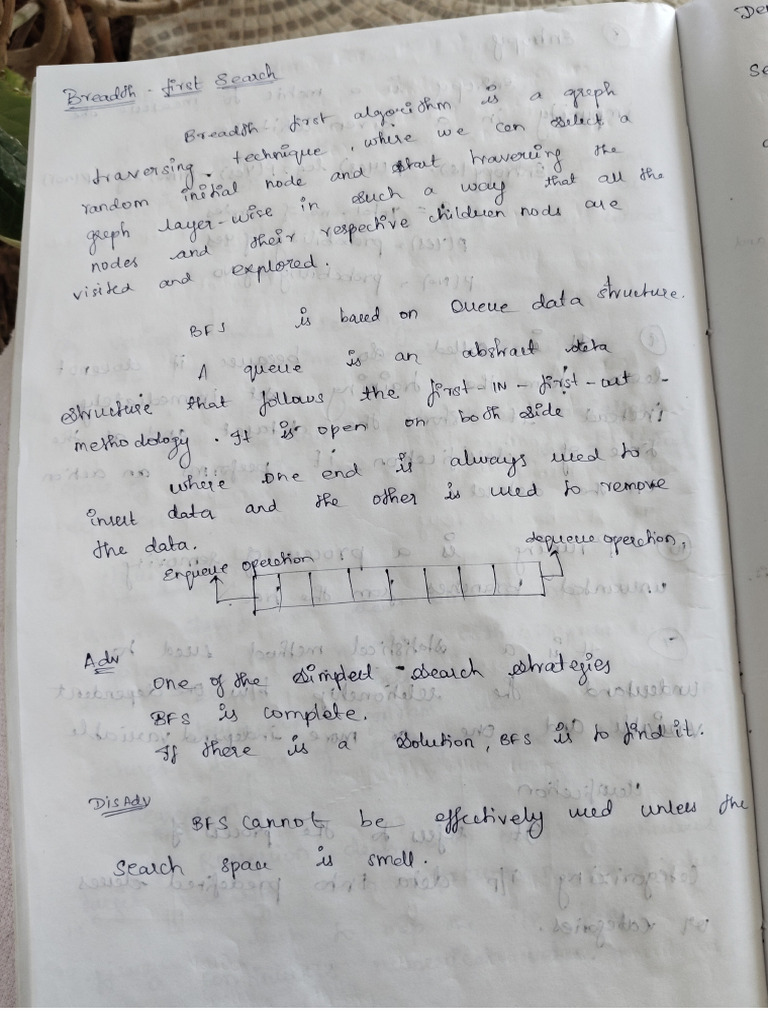 Breadth - first Search
Breadth first algorithm is a graph
traversing technique, where we can select a
random initial node and start traversing the
graph layer-wise in such a way that all the
nodes and their respective children nods are
visited and explored.
BFS is based on Queue data structure.
A queue is an abstract data
structure that follows the first - IN - first - out -
methodology. It is open on both side
where one end is always used to
insert data and the other is used to remove
the data.
Enqueue operation dequeue operation,
Adv
One of the simplest - search strategies
BFS is complete.
If there is a solution, BFS is to find it.
DisAdv
BFS cannot be effectively used unless the
search space is small.
De
Se